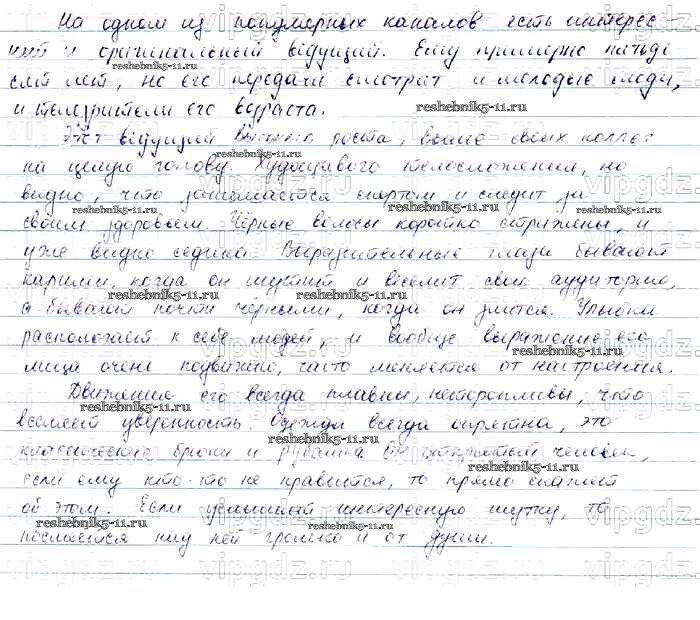 На одном из популярных каналов есть интерес
ный и оригинальный ведущий. Ему примерно пятьде
сят лет, но его передачи смотрят и молодые люди,
и телезрители его возраста.
Этот ведущий высокого роста, выше своих коллег
на целую голову. Худощавого телосложения, но
видно, что занимается спортом и следит за
своим здоровьем. Чёрные волосы коротко стрижены, и
уже видно седина. Выразительные глаза бывают
карими, когда он шутит и веселит свою аудиторию,
а бывают почти чёрными, когда он злится. Улыбка
располагает к себе людей, и вообще выражение его
лица очень подвижно, часто меняется от настроения.
Движения его всегда плавны, неторопливы, что
вселяет уверенность. Одежда всегда опрятна, это
классические брюки и рубашка. Он открытый человек,
если ему кто-то не нравится, то прямо скажет
об этом. Если услышит интересную шутку, то
посмеется над ней громко и от души.
reshebnik5-11.ru
reshebnik5-11.ru
reshebnik5-11.ru
reshebnik5-11.ru
reshebnik5-11.ru
reshebnik5-11.ru
reshebnik5-11.ru
reshebnik5-11.ru
reshebnik5-11.ru
reshebnik5-11.ru
reshebnik5-11.ru
reshebnik5-11.ru
reshebnik5-11.ru
vipgdz.ru
vipgdz.ru
vipgdz.ru
vipgdz.ru